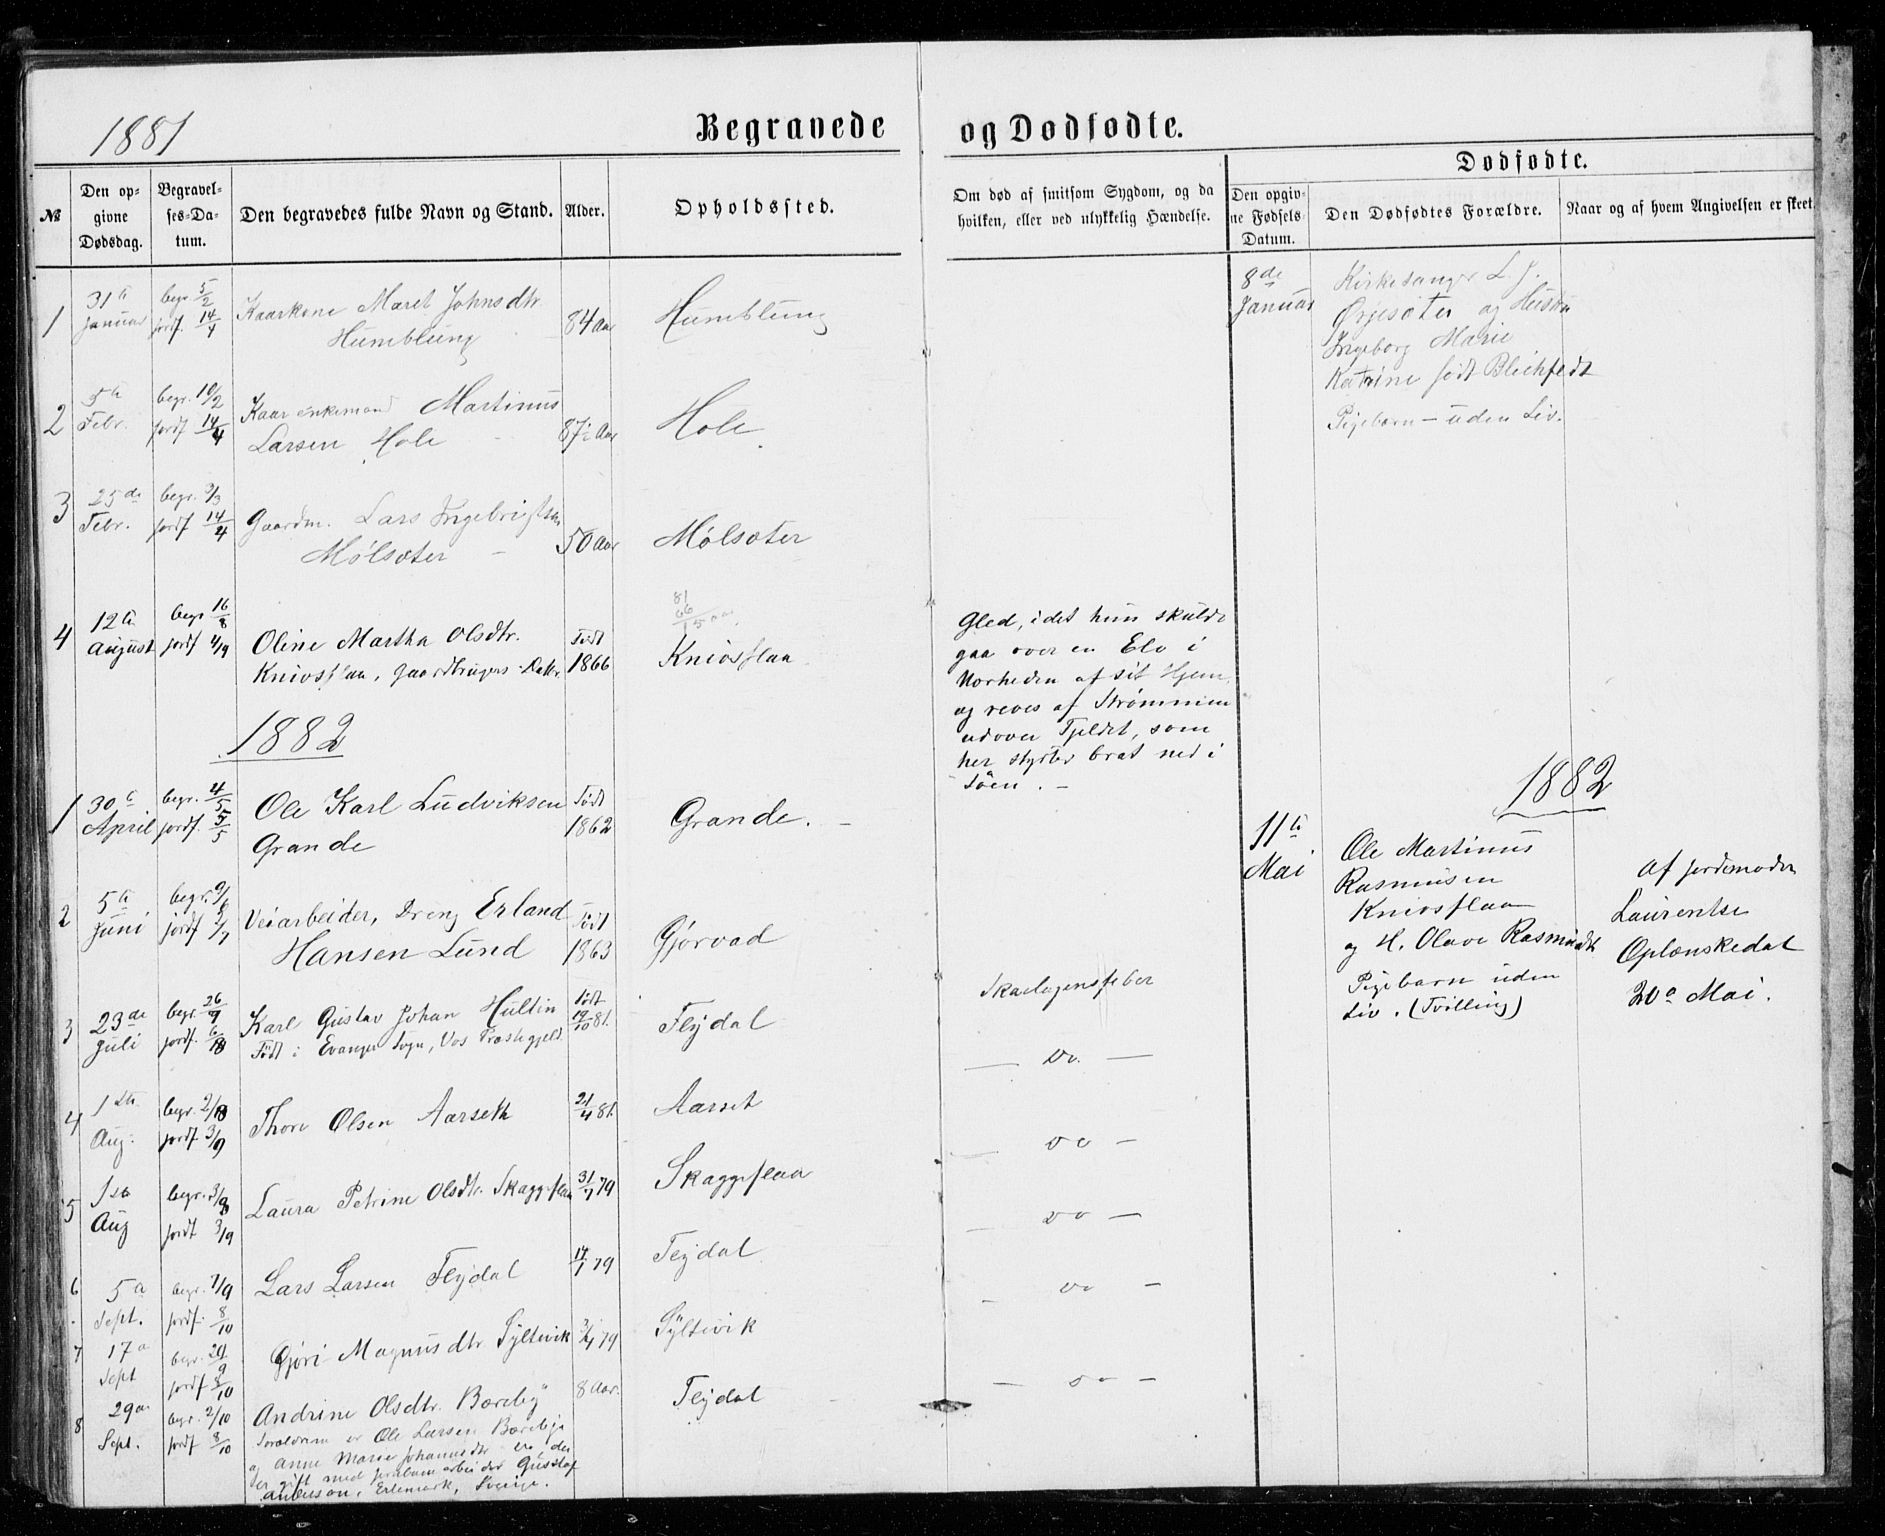 1881
Begravede og Dødfødte.
Dødfødte.
№
Den opgivne Dødsdag.
Begravelses-Datum.
Den begravedes fulde Navn og Stand.
Alder.
Opholdssted.
Om død af smitsom Sygdom, og da hvilken, eller ved ulykkelig Hændelse.
Den opgivne Fødsels-Datum.
Den Dødfødtes Forældre.
Naar og af hvem Angivelsen er skeet
1
31te Januar
begr. 5/2
jordf. 14/4
Kaarkone Maret Johnsdtr.
Humblung
84 Aar
Humblung
2
5te Febr.
begr. 10/2
jordf 14/4
Kaarenkemand Martinus
Larsen Hole
87½ Aar
Hole
3
25de Febr.
begr. 3/3
jordf 14/4
Gaardm. Lars Ingebrigtsen
Mølsæter
50 Aar
Mølsæter
4
12te August
begr 16/8
jordf 4/9
Oline Martha Olsdtr.
Knivsflaa, Gaardbrugers Datter
Født
1866
81
66
15 aar
Knivsflaa
Gled, idet hun skulde
gaa over en Elv i
Nærheden af sit Hjem,
og reves af Strømmen
udover Fjeldet, som
her styrter brat ned i
Søen. –
1882
1
30te April
begr. 4/5
jordf. 5/5
Ole Karl Ludviksen
Grande
Født
1862
Grande. –
2
5te Juni
begr. 9/6
jordf 2/7
Veiarbeider, Dreng Erland
Hansen Lund
Født
1863
Gjørvad
3
23de Juli
begr. 26/7
jordf. 6/8
Karl Gustav Johan Hultin
Født i Evanger Sogn, Vos Præstegjeld.
Født
19/10 81.
Flydal
Skarlagensfeber
4
1ste Aug.
begr. 2/8
jordf. 3/9
Thore Olsen Aarseth
21/4 81.
Aarset
— Do. —
5
1ste Aug
begr. 3/8
jordf 3/9
Laura Petrine Olsdtr. Skaggeflaa
31/7 79
Skaggeflaa
Do —
6
5te Sept.
begr. 7/9
jordf. 8/10
Lars Larsen Flydal
14/1 79
Flydal
— Do —
7
17de Sept
begr. 20/9
jordf 8/10
Gjøri Magnusdtr Syltevik
3/4 79
Syltevik
— Do —
8
29de Sept.
begr. 2/10
jordf 8/10
Andrine Olsdtr. Bæreby
Forældrene er Ole Larsen Bæreby
og Anne Marie Johannesdtr
er gift med Jernbanearbeider Gustaf
Anderson, Erlemark, Sverige.
8 Aar.
Flydal
— Do —
8de Januar
Kirkesanger L. J.
Ørjesæter og Hustru
Ingeborg Marie
Katrine født Blichfeldt
Pigebarn – uden Liv.
1882
11te Mai
Ole Martinus
Rasmusen
Knivsflaa
og H. Olave Rasmusdtr
Pigebarn uden
Liv. (Tvilling)
af Jordemoder
Laurentse
Oplænskedal
20de Mai.